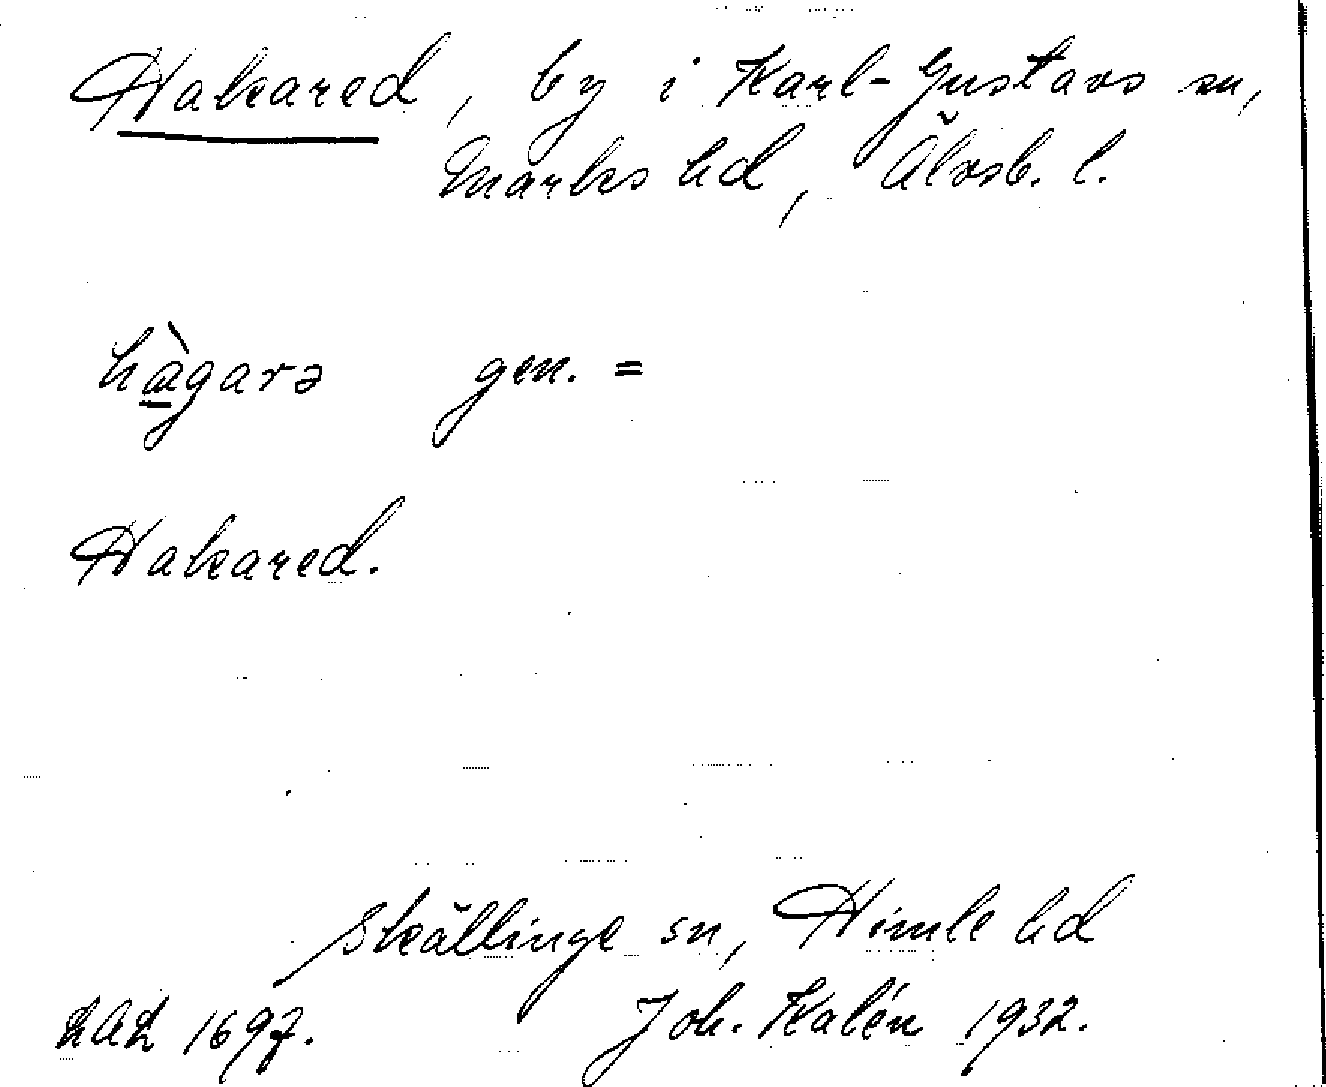 Hakared, by i Karl-Gustavs sn,
Marks hd, Älvsb. l.
hàgarə gen. =
Hakared.
Skällinge sn, Himle hd
LAL 1697. Joh. Kalén 1932.